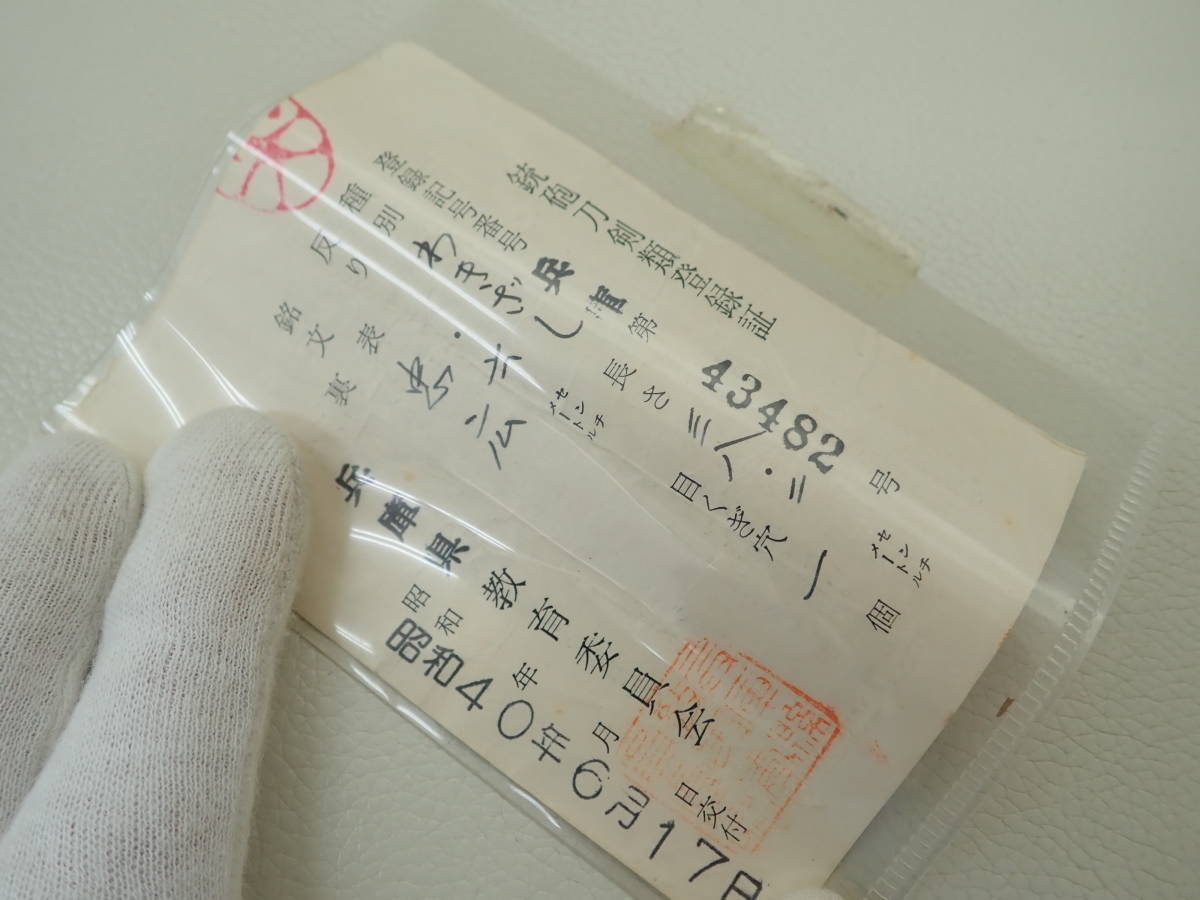 銃砲刀剣類登録証
登録記号番号 兵庫 第 43482 号
種別 わきざし 長さ 三八・三 センチメートル
反り ・六 センチメートル 目くぎ穴 一 個
銘文 表 忠広
裏
兵庫県教育委員会
昭和 年 月 日交付
昭和40年 月17日